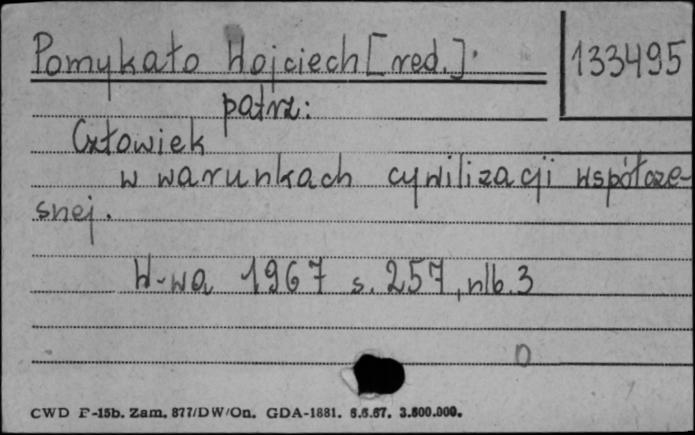 Pomykało Wojciech [red.].
133495
patrz:
Człowiek
w warunkach cywilizacji współcze-
snej.
W-wa 1967 s. 257, nlb. 3
0
CWD F-15b. Zam. 877/DW/On. GDA-1881. 6.6.67. 3.600.000.